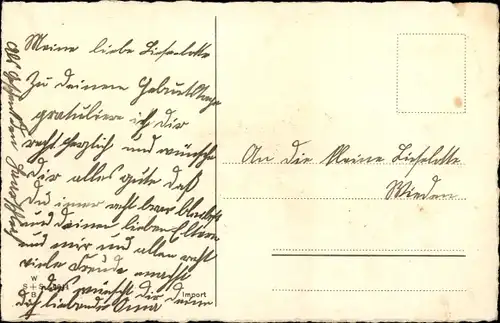 Meine liebe Lieselotte
Zu deinem Geburtstage
gratuliere ich dir
recht herzlich und wünsche
dir alles gute daß
du immer recht brav bleibst
und deinen lieben Eltern
und mir und allen recht
viele Freude machst
das wünscht dir deine
dich liebende Oma
An die Kleine Lieselotte
Wieden
W
S+S
B
Import